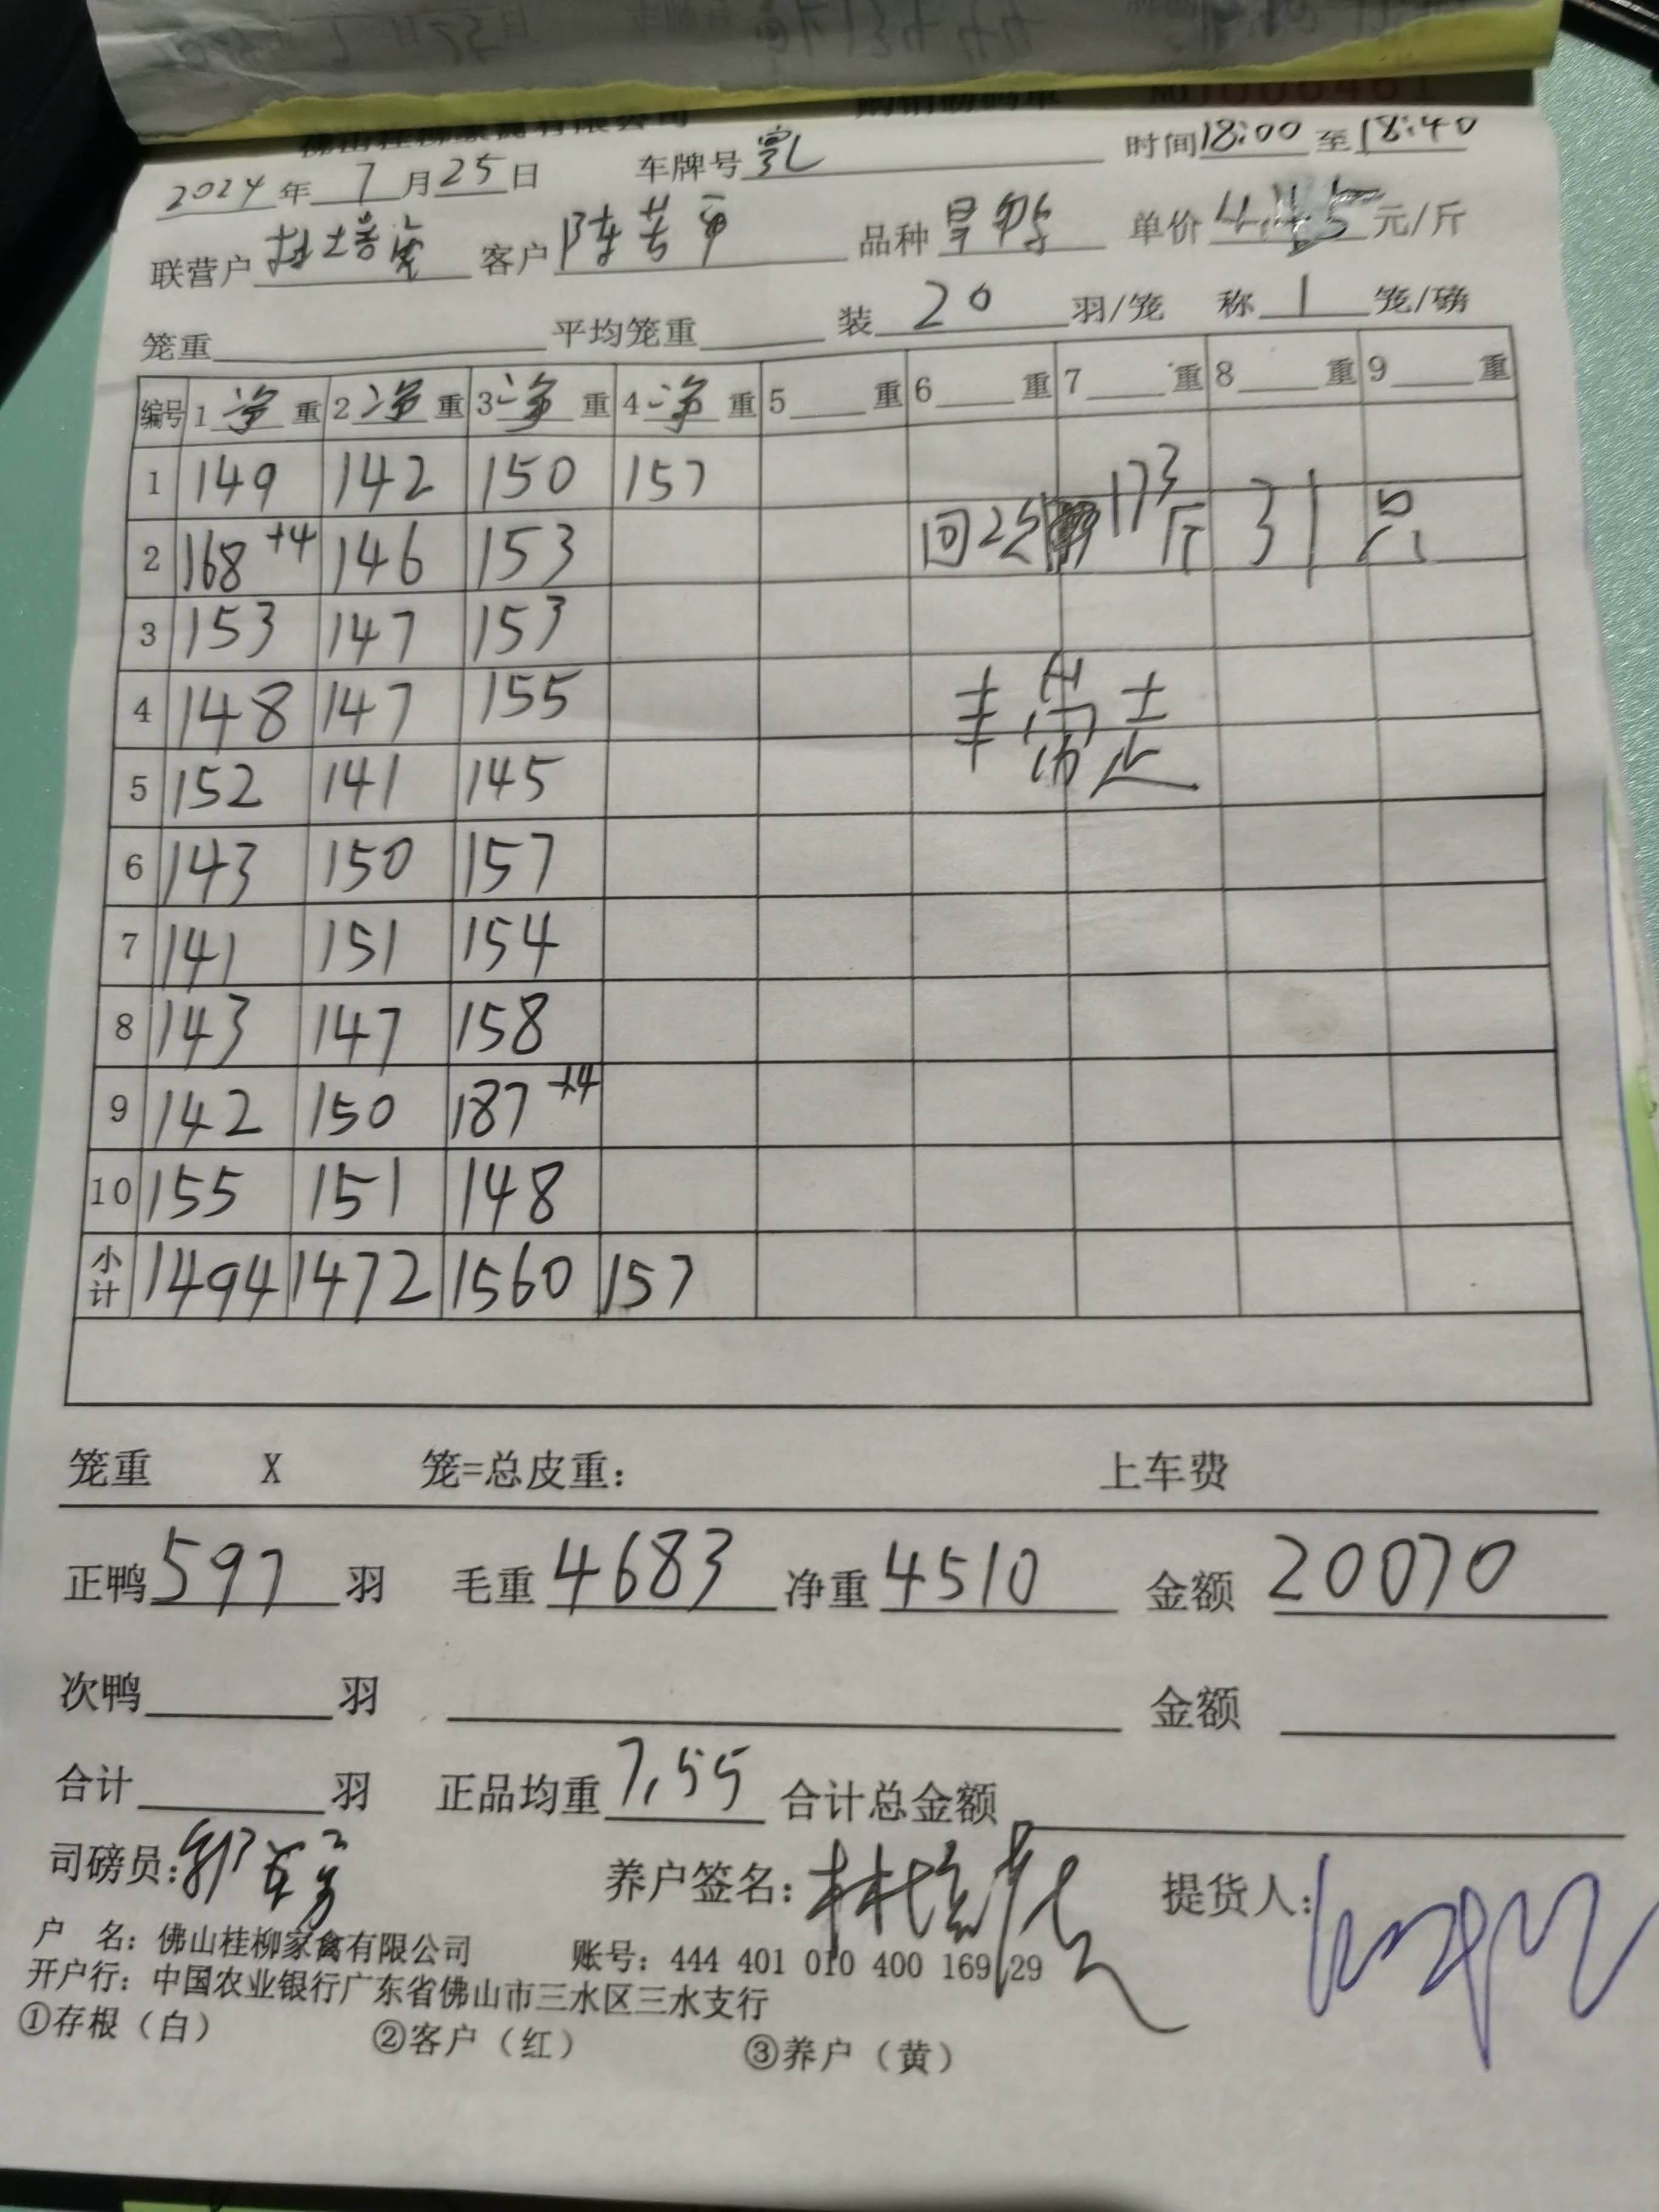 2024年 7月25日 车牌号 时间18:00至18:40
联营户 客户 陈 品种 单价 4.45 元/斤
笼重 平均笼重 装 20 羽/笼 称 1 笼/磅
编号 1 净 重 2 净 重 3 净 重 4 净 重 5 重 6 重 7 重 8 重 9 重
1 149 142 150 157
2 168 +4 146 153 回2笼 173斤 31只
3 153 147 153
4 148 147 155
5 152 141 145
6 143 150 157
7 141 151 154
8 143 147 158
9 142 150 187 +4
10 155 151 148
小计 1494 1472 1560 157
笼重 X 笼=总皮重: 上车费
正鸭 597 羽 毛重 4683 净重 4510 金额 20070
次鸭 羽 金额
合计 羽 正品均重 7.55 合计总金额
司磅员: 养户签名: 提货人:
户 名: 佛山桂柳家禽有限公司 账号: 444 401 010 400 169 29
开户行: 中国农业银行广东省佛山市三水区三水支行
①存根（白） ②客户（红） ③养户（黄）